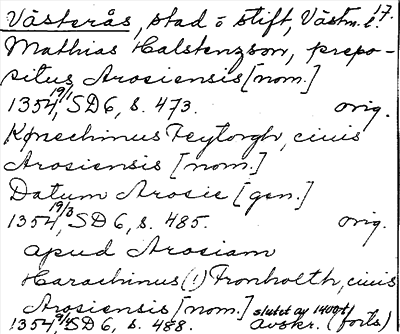 Västerås, stad o stift, Västm. l. 17.
Mathias Halstenzson, prepo-
situs Arosiensis [nom.]
1354 19/1, SD 6, s. 473. orig.
Arosiensis [nom.]
Datum Arosie [gen.]
1354 19/3, SD 6, s. 485. orig.
apud Arosiam
Harachinus (!) Fronholth, ciuis
Arosiensis [nom.] slutet av 1400t
1354 SD 6, s. 488. avskr. (forts)